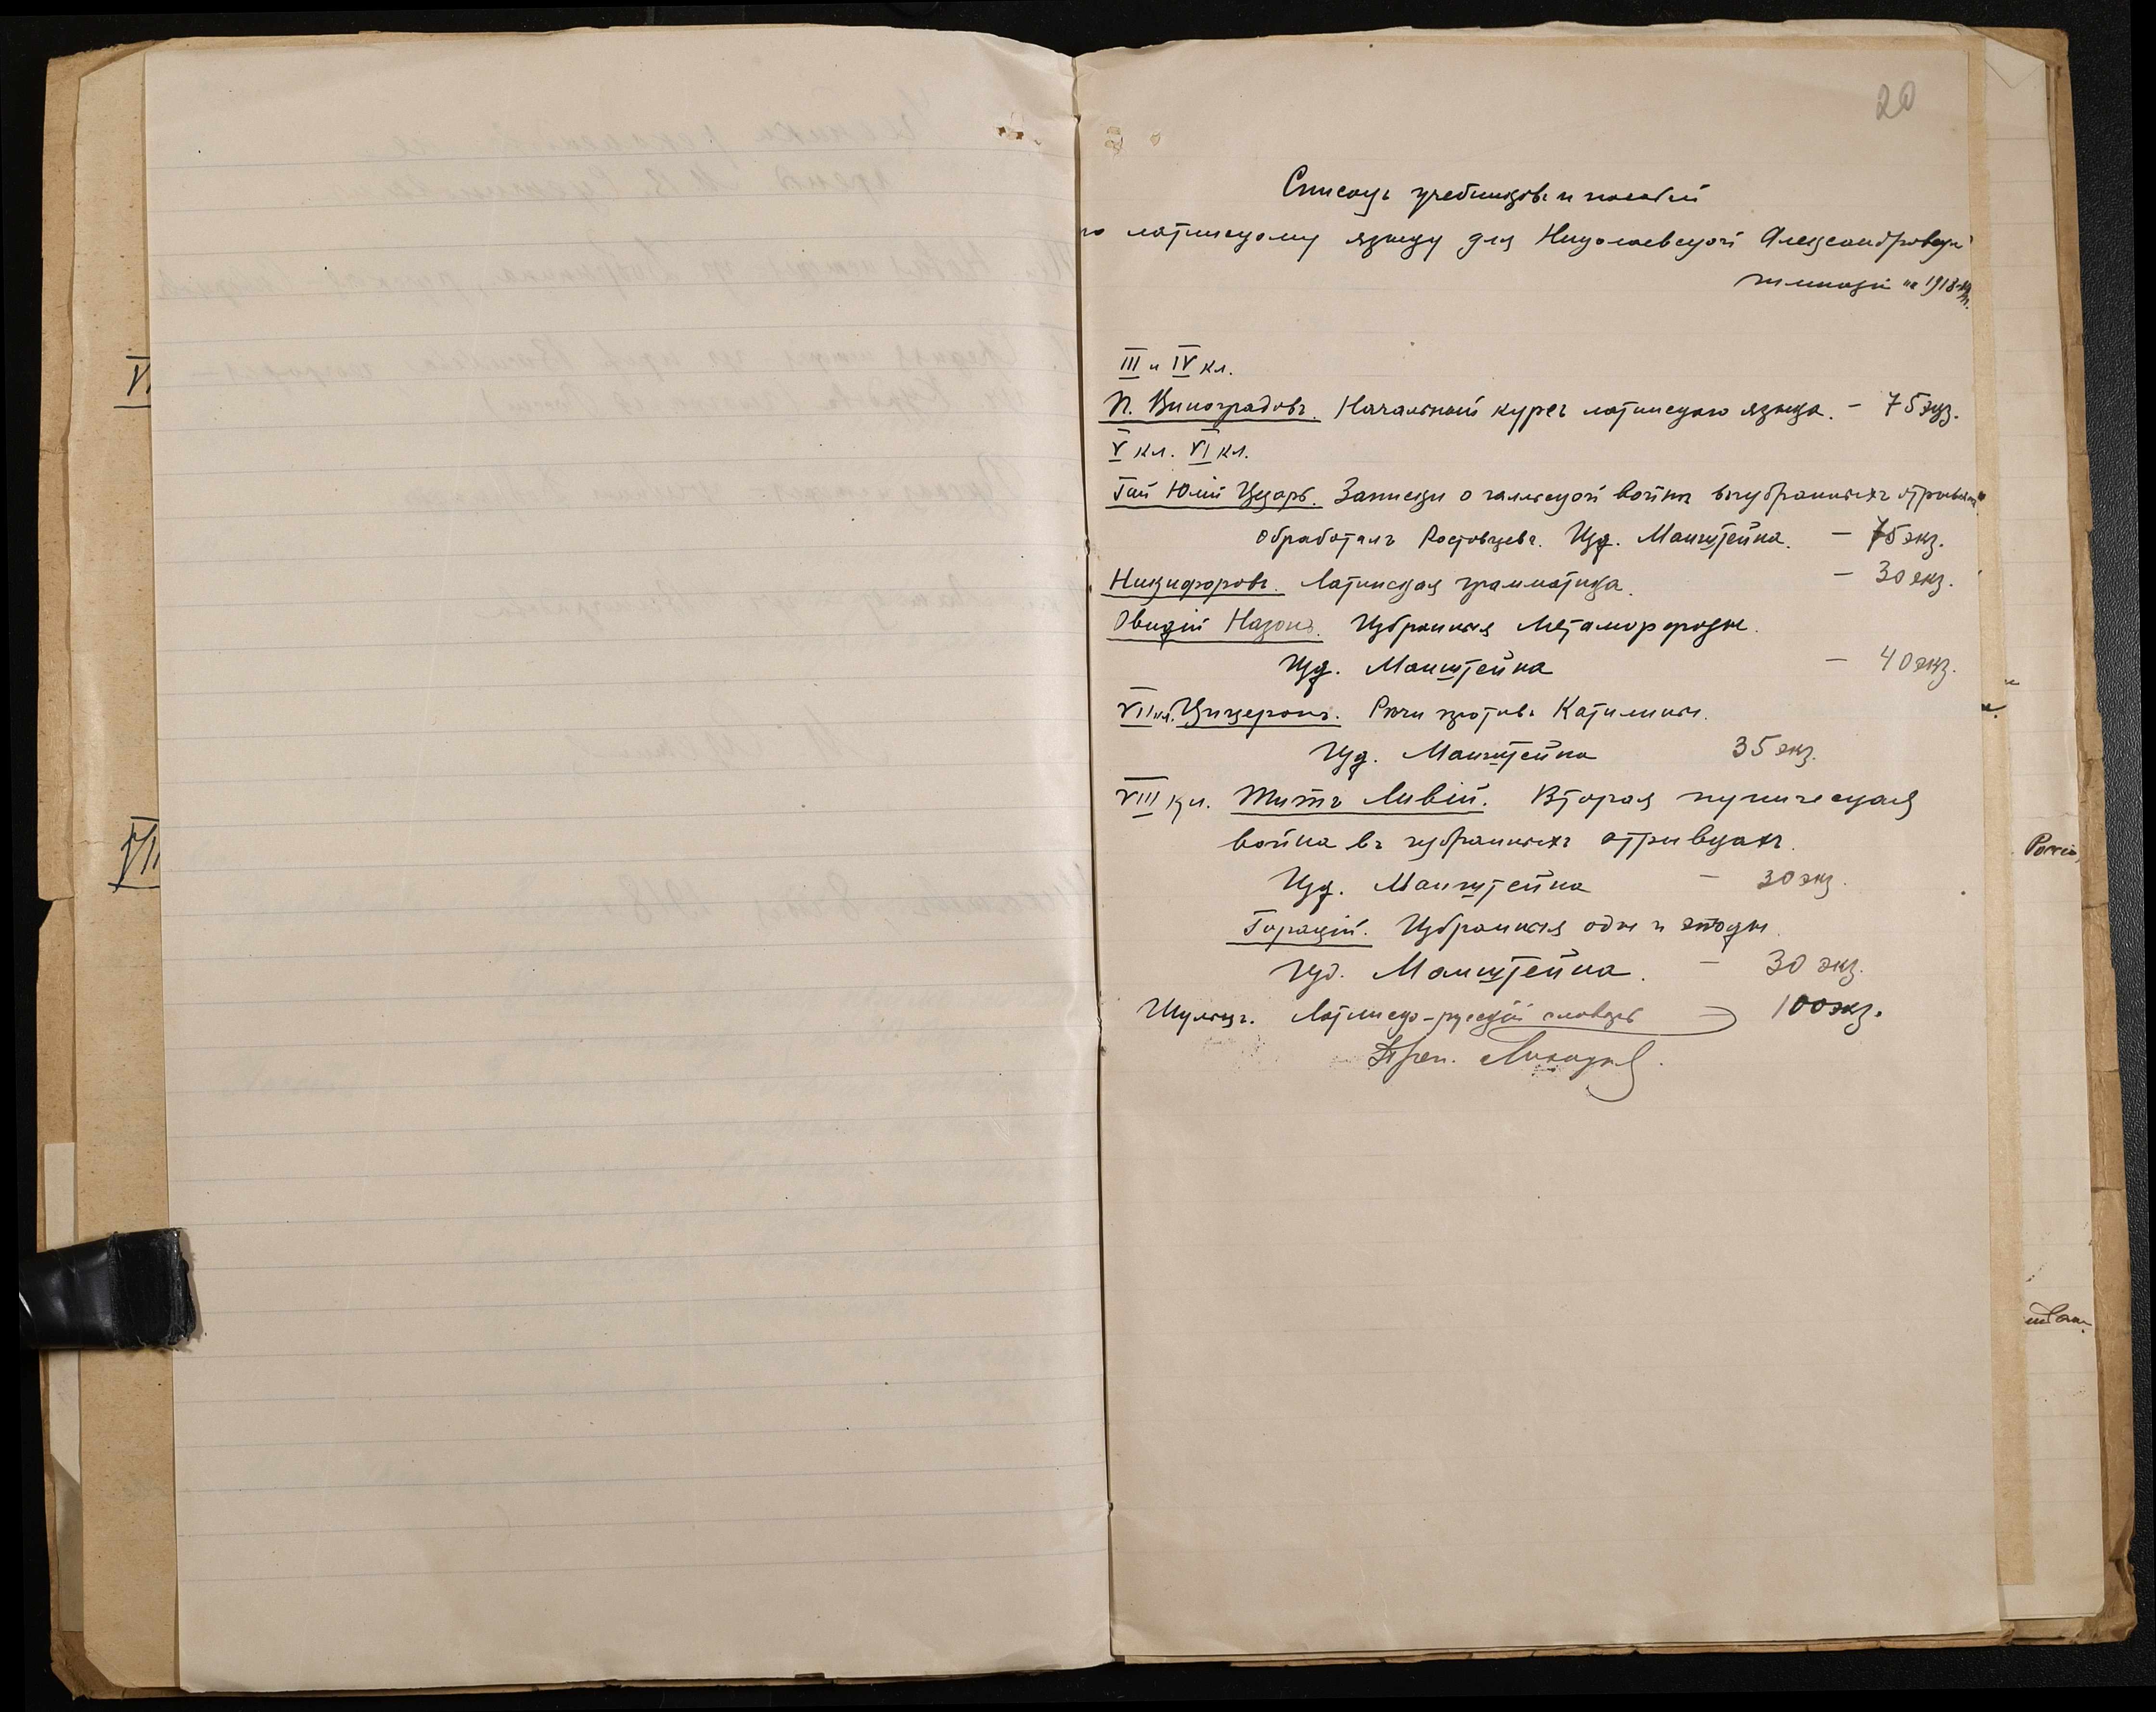 VI
VII
20
Списокъ учебниковъ и пособій
по латинскому языку для Николаевской Александровской
гимназіи на 1918-19
III и IV кл.
П. Виноградовъ. Начальный курсъ латинскаго языка. - 75 экз.
V кл. VI кл.
Гай Юлій Цезарь. Записки о галльской войнѣ въ избранныхъ отрывкахъ
Обработалъ Ростовцевъ. Изд. Манштейна. - 75 экз.
Никифоровъ. Латинская грамматика. - 30 экз.
Овидій Назонъ. Избранныя Метаморфозы.
Изд. Манштейна - 40 экз.
VII кл. Цицеронъ. Рѣчи противъ Катилины.
Изд. Манштейна 35 экз.
VIII кл. Титъ Ливій. Вторая пуническая
война въ избранныхъ отрывкахъ.
Изд. Манштейна - 30 экз.
Горацій. Избранныя оды и эподы.
Изд. Манштейна. - 30 экз.
Шульцъ. Латинско-русскій словарь - 100 экз.
Преп.